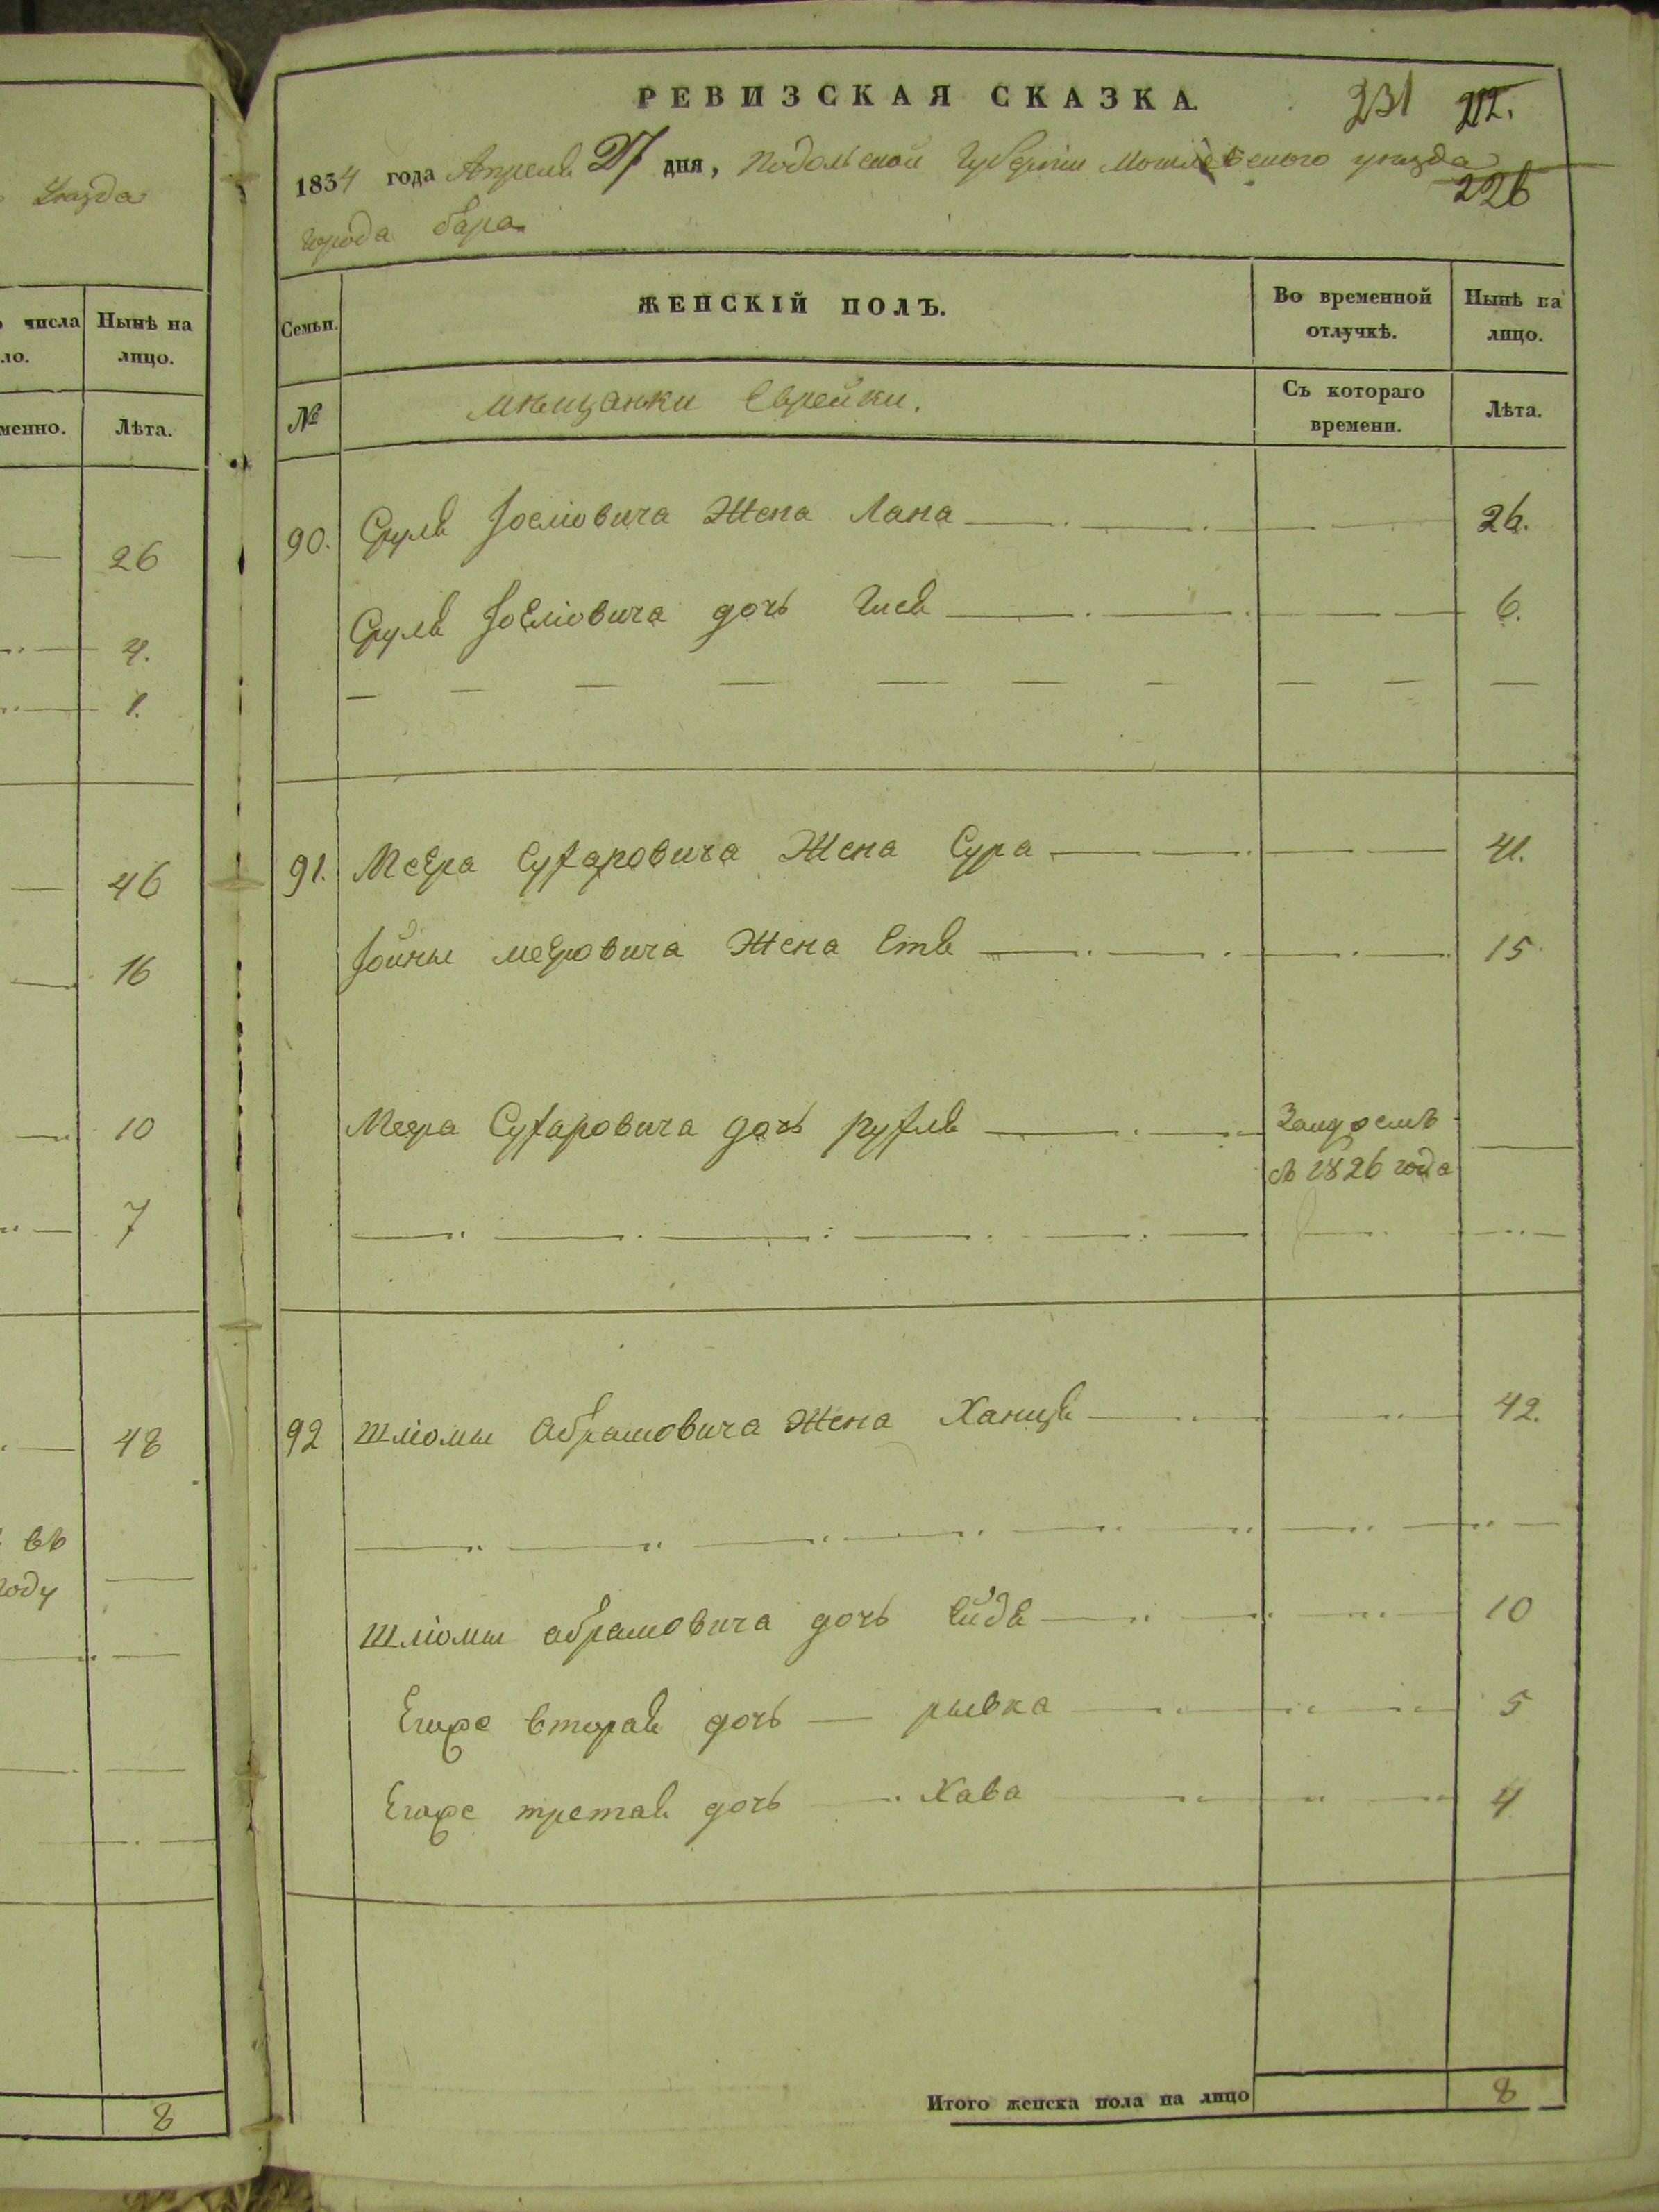 Уѣзда
числа
Нынѣ на
ло.
лицо.
менно.
Лѣта.
26
4.
1.
46
16
10
7
48
въ
году
8
РЕВИЗСКАЯ СКАЗКА.
231 212.
1854 года Апреля 27 дня, Подольской Губерніи Могилевского уѣзда
226
города бара
Семьи.
ЖЕНСКІЙ ПОЛЪ.
Во временной
отлучкѣ.
Нынѣ на
лицо.
№
мѣщанки Еврейки.
Съ котораго
времени.
Лѣта.
90. Сруля Іосіовича Жена Лана 26.
Сруля Іосіовича дочь Гися 6.
91. Меера Сухаровича Жена Сура 41.
Іойны меровича Жена Етя 15
Меера Сухаровича дочь Рухля Замужемъ
съ 1826 года
92 Шліомы Абрамовича Жена Ханця 42.
Шліомы абрамовича дочь Ейдя 10
Егоже вторая дочь рывка 5
Егоже третая дочь Хава 4
Итого женска пола на лицо 8